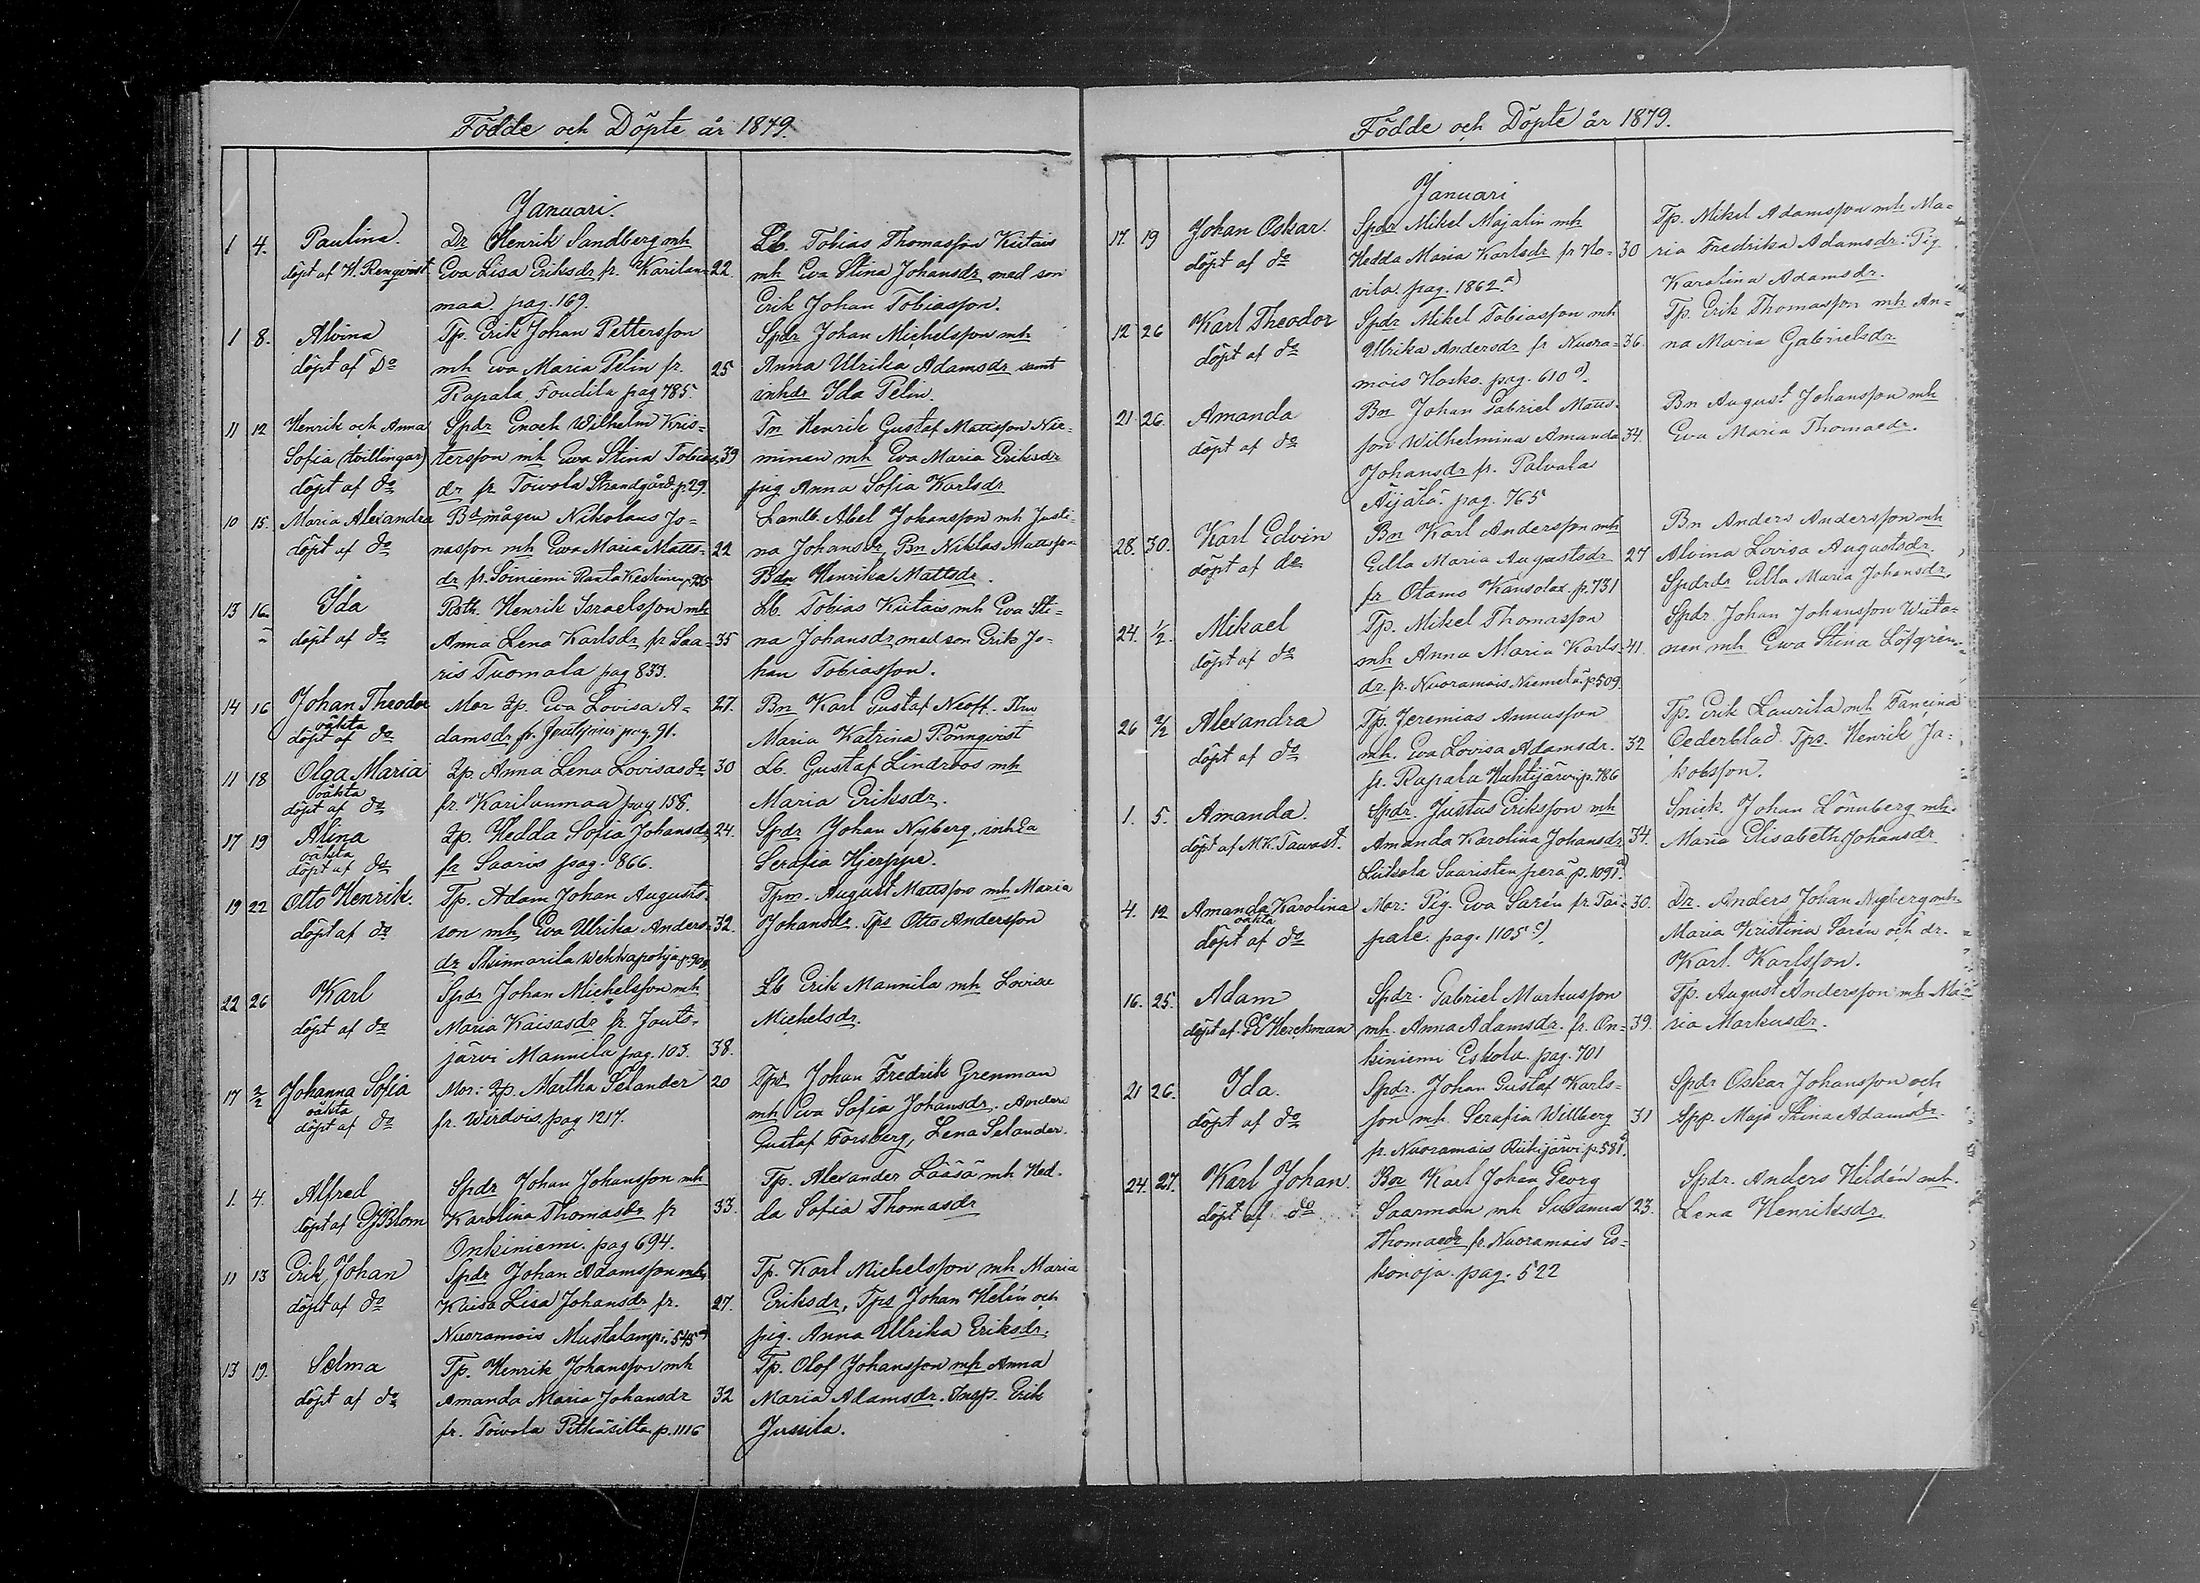 Födde och Döpte år 1879.
Januari.
1 4. Paulina. Dr Henrik Sandberg mh Lb. Tobias Thomasson Kiitais
döpt af H. Renqvist Eva Lisa Eriksdr fr. Karilan= 22 mh Eva Stina Johansdr med son
maa pag. 169. Erik Johan Tobiasson.
1 8. Alvina Tp. Erik Johan Pettersson Spdr Johan Michelsson mh
döpt af Do mh Eva Maria Pelin fr. 25 Anna Ulrika Adamsdr samt
Rapala, Foudila pag 785. inhdr Ida Pelin.
11 12 Henrik och Anna Spdr Enoch Wilhelm Kris= Tn Henrik Gustaf Mattsson Nie=
Sofia (tvillingar) tersson mh Ewa Stina Tobias 39 minen mh Eva Maria Eriksdr
döpt af do dr fr Toivola Strandgård p. 29. pig Anna Sofia Karlsdr
10 15. Maria Alexandra Bdmågen Nikolaus Jo= Landb. Abel Johansson mh Justi=
döpt af do nasson mh Ewa Maria Matts= 22 na Johansdr, Bn Niklas Mattsson
dr fr. Soiniemi Ranta Keskinen p. Bdn Henrika Mattsdr.
13 16 Ida Roth. Henrik Israelsson mh Lb. Tobias Kiitais mh Eva Sti=
döpt af do Anna Lena Karlsdr fr Saa= 35 na Johansdr med son Erik Jo=
ris Tuomala pag 833. han Tobiasson.
14 16 Johan Theodor Mor Ip. Eva Lovisa A= 27. Bn Karl Gustaf Neoff.
oäkta
döpt af do damsdr fr. Joutsjärvi pag 91. Maria Katrina Rönnqvist
11 18 Olga Maria Ip. Anna Lena Lovisasdr 30 Lb. Gustaf Lindroos mh
oäkta
döpt af do fr. Karilanmaa pag 158. Maria Eriksdr.
17 19 Alina Ip. Hedda Sofia Johansdr 24. Spdr Johan Nyberg, inhda
oäkta
döpt af do fr Saaris pag. 866. Serafia Hjerppe.
19 22 Otto Henrik. Tp. Adam Johan Augusts= Tpm. August Mattsson mh Maria
döpt af do son mh Eva Ulrika Anders= 32. Johansdr. Tps Otto Andersson
dr Skinnarila Wehkapohja p.
22 26 Karl Spdr Johan Michelsson mh Lb Erik Mannila mh Lovisa
döpt af do Maria Kaisasdr fr. Jouts= Michelsdr.
järvi Mannila pag. 103. 38.
17 2/2 Johanna Sofia Mor: Ip. Martha Selander 20 Tps Johan Fredrik Grenman
oäkta mh Eva Sofia Johansdr. Anders
döpt af do fr. Wirdois pag 1217. Gustaf Forsberg, Lena Selander.
1. 4. Alfred Spdr Johan Johansson mh Tp. Alexander Lääsä mh Hed=
döpt af DJ Blom Karolina Thomasdr fr 33. da Sofia Thomasdr
Onkiniemi. pag 694.
11 13 Erik Johan Spdr Johan Adamsson mh Tp. Karl Michelsson mh Maria
döpt af do Kaisa Lisa Johansdr fr. 27. Eriksdr, Tps Johan Helin och
Nuoramois Mustalampi. 545 a) pig. Anna Ulrika Eriksdr.
13 19. Selma Tp. Henrik Johansson mh Tp. Olof Johansson mh Anna
döpt af do Amanda Maria Johansdr 32 Maria Adamsdr. Insp. Erik
fr. Toivola Pitkäsilta p. 1116 Jussila.
Födde och Döpte år 1879.
Januari
17. 19 Johan Oskar. Spdr Mikel Majalin mh Tp. Mikel Adamsson mh Ma=
döpt af do Hedda Maria Karlsdr fr Ho= 30 ria Fredrika Adamsdr. Pig
vila pag. 1862 a) Karolina Adamsdr.
12 26 Karl Theodor Spdr Mikel Tobiasson mh Tp. Erik Thomasson mh An=
döpt af do Ulrika Andersdr fr Nuora= 36. na Maria Gabrielsdr.
mois Hosko. pag. 610 a).
21 26. Amanda Bn Johan Gabriel Matts= Bn August Johansson mh
döpt af do son Wilhelmina Amanda 34. Eva Maria Thomasdr.
Johansdr fr. Palvala
Äijälä. pag. 765
28. 30. Karl Edvin Bn Karl Andersson mh Bn Anders Andersson mh
döpt af do Edla Maria Augustsdr 27 Alvina Lovisa Augustsdr.
fr Otamo Kansola p. 731 Spdrdr Edla Maria Johansdr.
24. 1/2. Mikael Tp. Mikel Thomasson Spdr Johan Johansson Wiita=
döpt af do mh Anna Maria Karls= 41. nen mh Ewa Stina Löfgren=
dr. fr. Nuoramois Niemelä p 509
26 2/2 Alexandra Tp. Jeremias Annusson Tp. Erik Laurila mh
döpt af do mh. Eva Lovisa Adamsdr. 32 Cederblad Tps. Henrik Ja=
fr. Rapala Huhtijärvi p. 786 kobsson.
1. 5. Amanda. Spdr. Justus Eriksson mh Snick. Johan Lönnberg mh
döpt af M.K. Tawast. Amanda Karolina Johansdr 34. Maria Elisabeth Johansdr
Liikola Saaristenperä p. 1091 a)
4. 12 Amanda Karolina Mor: Pig. Eva Sarén fr Tai= 30. Dr. Anders Johan Nyberg mh
oäkta
döpt af do pale. pag. 1105 c). Maria Kristina Sarén och dr.
Karl Karlsson.
16. 25. Adam Spdr. Gabriel Markusson Tp. August Andersson mh Ma=
döpt af Herckman mh. Anna Adamsdr. fr. On= 39. ria Markusdr.
kiniemi Eskola. pag. 701
21 26. Ida. Spdr. Johan Gustaf Karls= Spdr Oskar Johansson och
döpt af do son mh. Serafia Willberg 31 Spp. Maja Stina Adamsdr.
fr. Nuoramois Ruhijärvi p. 581.
24. 27. Karl Johan. Bor Karl Johan Georg Spdr. Anders Hildén mh.
döpt af do Saarman mh Susanna 23. Lena Henriksdr.
Thomasdr fr. Nuoramois Es=
konoja. pag. 522